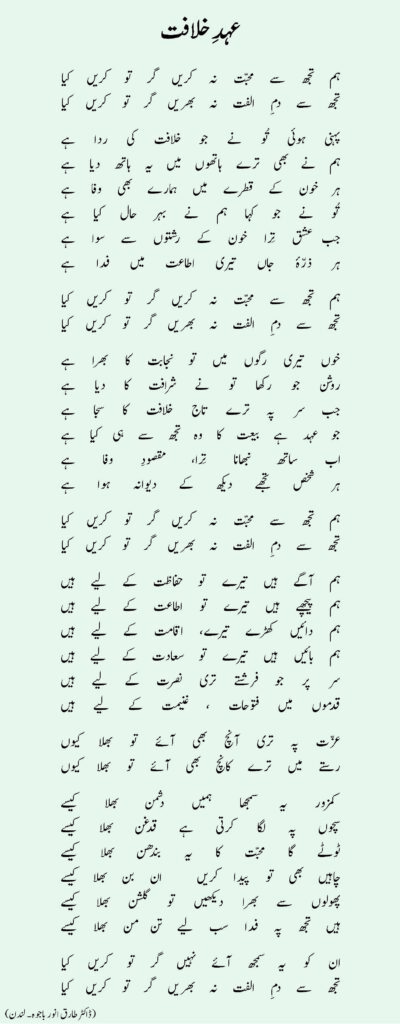 عہدِ خلافت
ہم تجھ سے محبّت نہ کریں گر تو کریں کیا
تجھ سے دمِ الفت نہ بھریں گر تو کریں کیا
پہنی ہوئی تُو نے جو خلافت کی ردا ہے
ہم نے بھی ترے ہاتھوں میں یہ ہاتھ دیا ہے
ہر خون کے قطرے میں ہمارے بھی وفا ہے
تُو نے جو کہا ہم نے بہر حال کیا ہے
جب عشق تِرا خون کے رشتوں سے سوا ہے
ہر ذرّۂ جاں تیری اطاعت میں فدا ہے
ہم تجھ سے محبّت نہ کریں گر تو کریں کیا
تجھ سے دمِ الفت نہ بھریں گر تو کریں کیا
خوں تیری رگوں میں تو نجابت کا بھرا ہے
روشن جو رکھا تو نے شرافت کا دیا ہے
جب سر پہ ترے تاج خلافت کا سجا ہے
جو عہد ہے بیعت کا وہ تجھ سے ہی کیا ہے
اب ساتھ نبھانا تِرا، مقصودِ وفا ہے
ہر شخص تجھے دیکھ کے دیوانہ ہوا ہے
ہم تجھ سے محبّت نہ کریں گر تو کریں کیا
تجھ سے دمِ الفت نہ بھریں گر تو کریں کیا
ہم آگے ہیں تیرے تو حفاظت کے لیے ہیں
ہم پیچھے ہیں تیرے تو اطاعت کے لیے ہیں
ہم دائیں کھڑے تیرے، اقامت کے لیے ہیں
ہم بائیں ہیں تیرے تو سعادت کے لیے ہیں
سر پر جو فرشتے تری نصرت کے لیے ہیں
قدموں میں فتوحات ، غنیمت کے لیے ہیں
عزّت پہ تری آنچ بھی آئے تو بھلا کیوں
رستے میں ترے کانچ بھی آئے تو بھلا کیوں
کمزور یہ سمجھا ہمیں دشمن بھلا کیسے
سچوں پہ لگا کرتی ہے قدغن بھلا کیسے
ٹوٹے گا محبّت کا یہ بندھن بھلا کیسے
چاہیں بھی تو پیدا کریں ان بن بھلا کیسے
پھولوں سے بھرا دیکھیں تو گلشن بھلا کیسے
ہیں تجھ پہ فدا سب لیے تن من بھلا کیسے
ان کو یہ سمجھ آئے نہیں گر تو کریں کیا
تجھ سے دمِ الفت نہ بھریں گر تو کریں کیا
(ڈاکٹر طارق انور باجوہ۔ لندن)